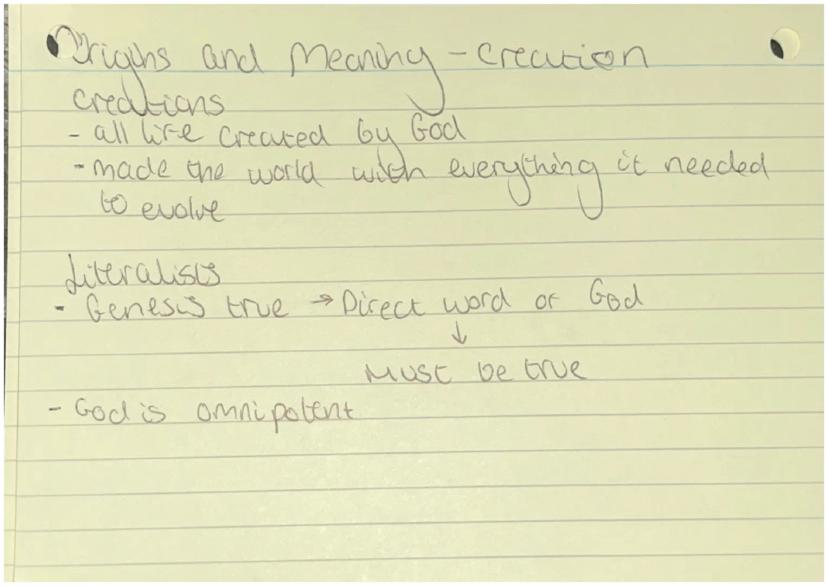 Origins and Meaning - Creation
Creations
- all life created by God
- made the world with everything it needed
to evolve
Literalists
- Genesis true → Direct word of God
↓
Must be true
- God is omnipotent